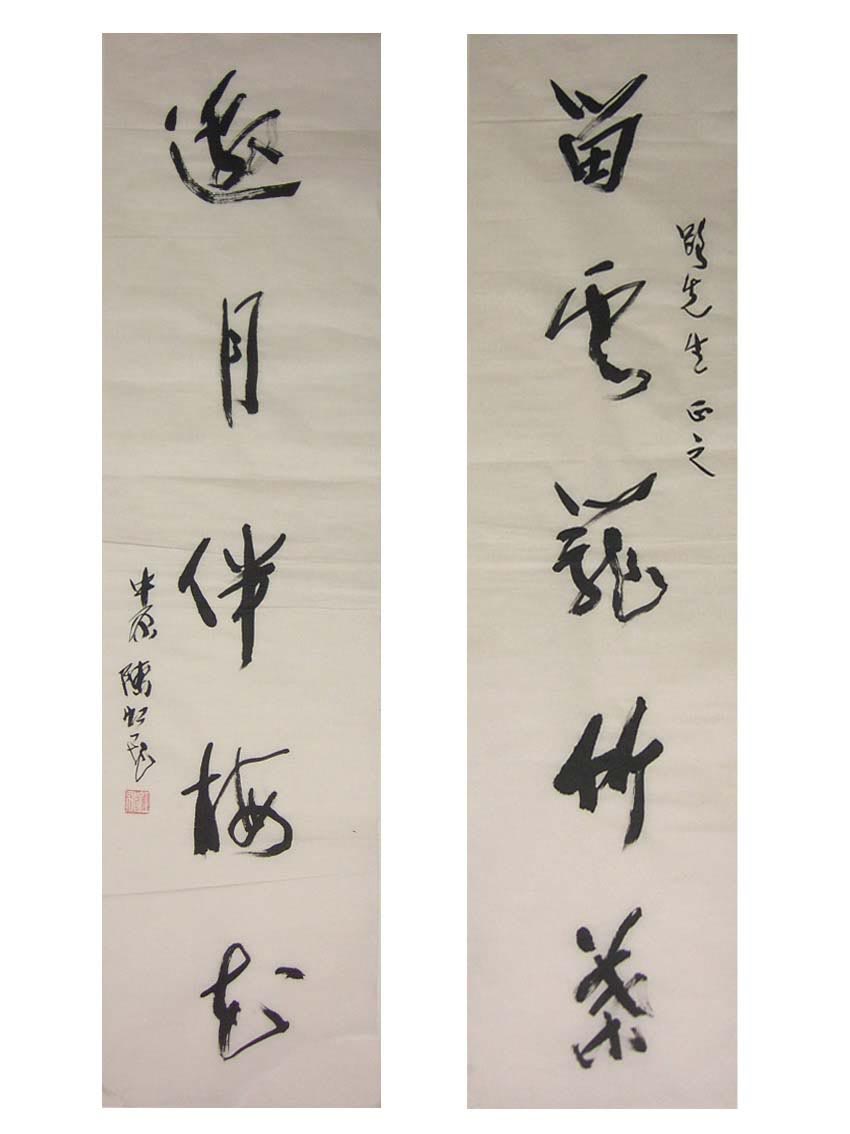 留雲籠竹葉
先生正之
邀月伴梅花
中原陳